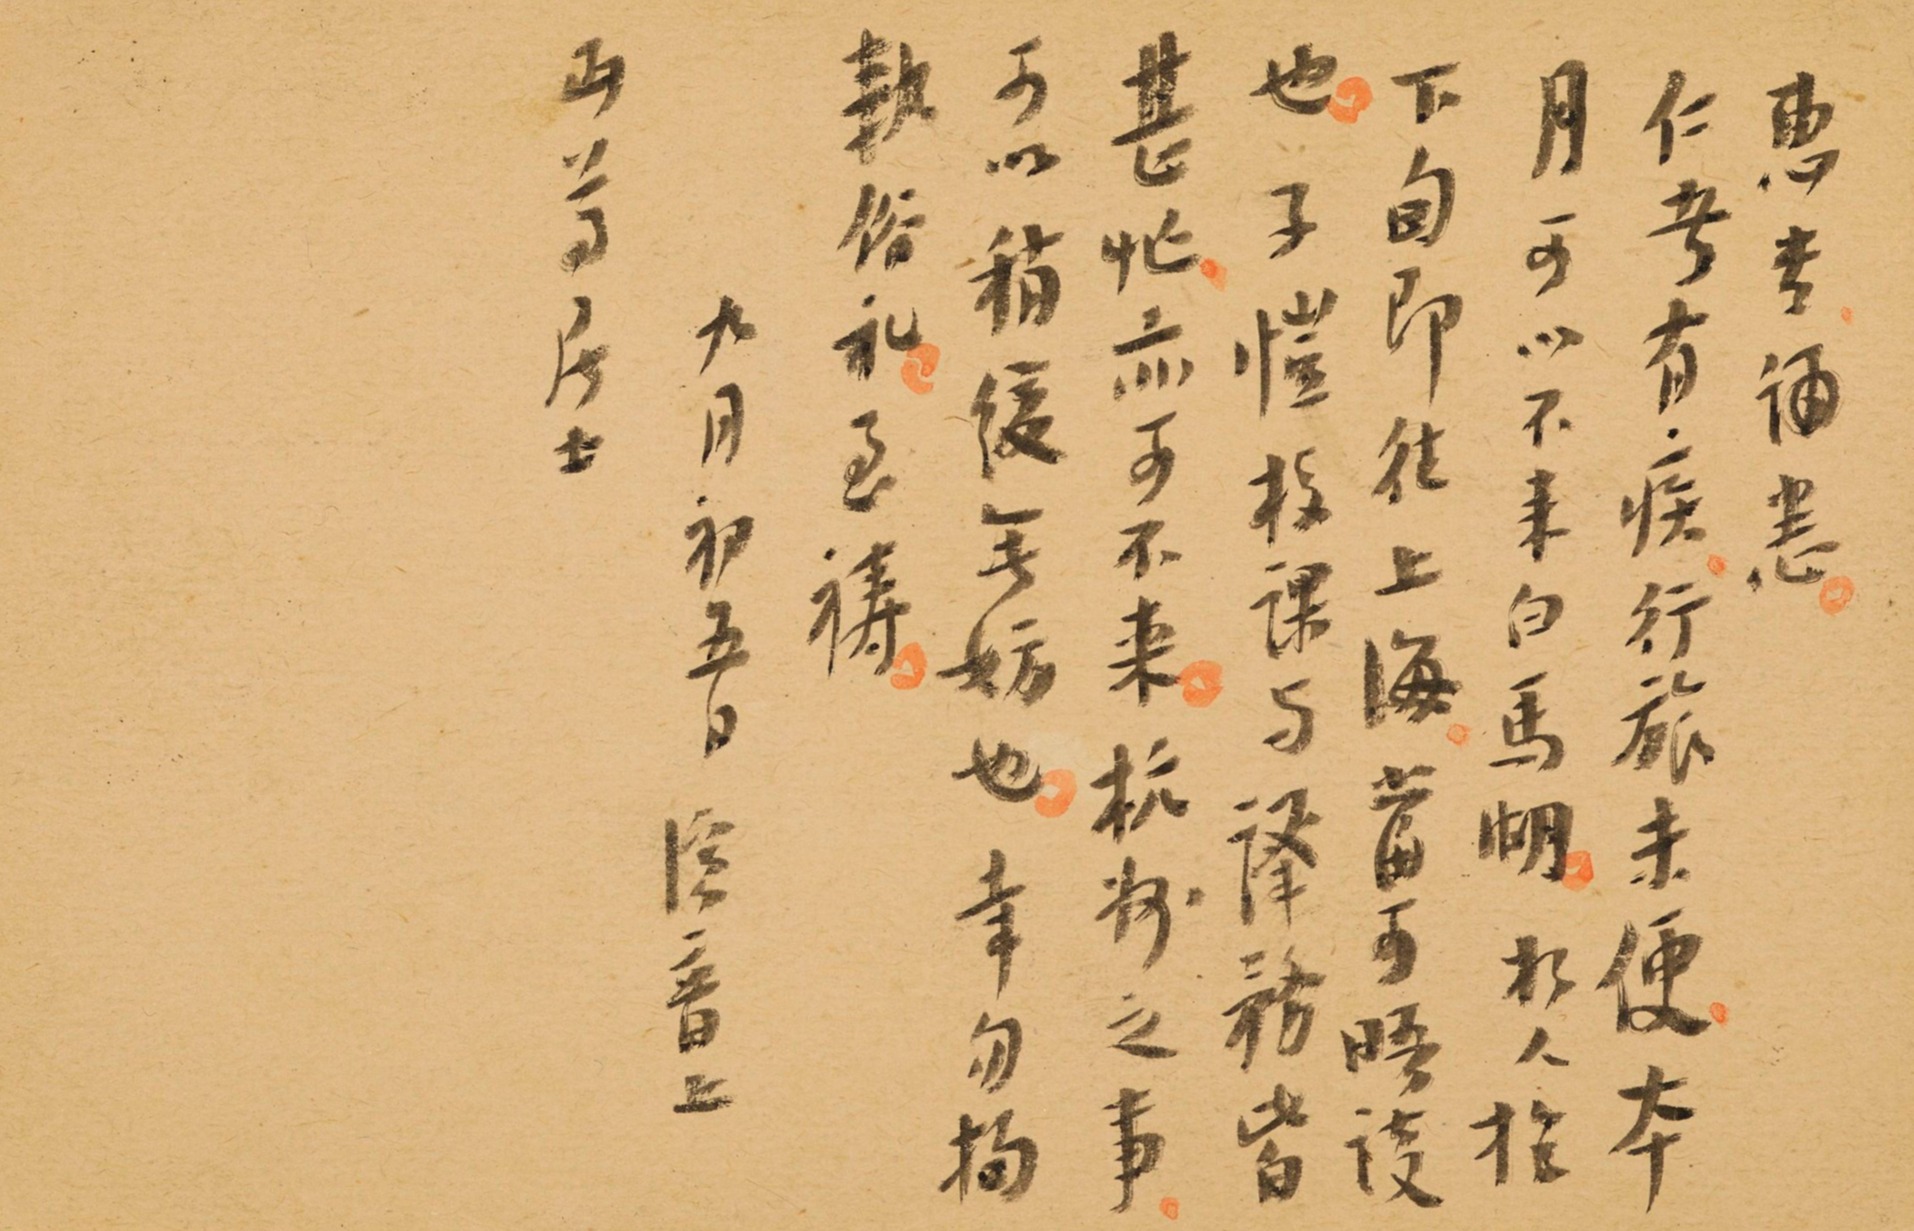 惠書誦悉
仁者有疾行旅未便本
月可以不来白馬湖朽人於
下旬即往上海當可晤談
也子愷校課与譯務皆
甚忙亦可不来杭州之事
可以稍緩無妨也幸勿拘
執俗礼至禱
九月初五日 演音上
丏尊居士